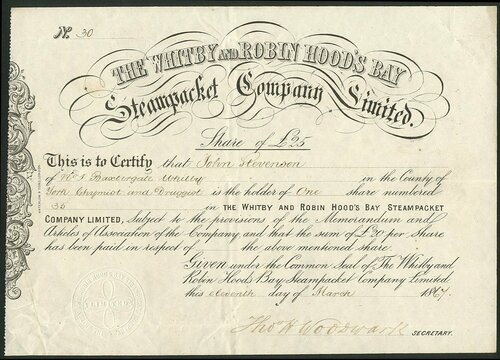 No. 30
THE WHITBY AND ROBIN HOOD'S BAY
Steampacket Company Limited.
Share of £25
This is to Certify that John Stevenson
of No. 1 Baxtergate Whitby in the County of
York Chymist and Druggist is the holder of One share numbered
35 in THE WHITBY AND ROBIN HOOD'S BAY STEAMPACKET
COMPANY LIMITED, Subject to the provisions of the Memorandum and
Articles of Association of the Company and that the sum of £20 per Share
has been paid in respect of the above mentioned share.
Given under the Common Seal of The Whitby and
Robin Hood's Bay Steampacket Company Limited
this eleventh day of March 1867.
Tho H Woodwark SECRETARY.